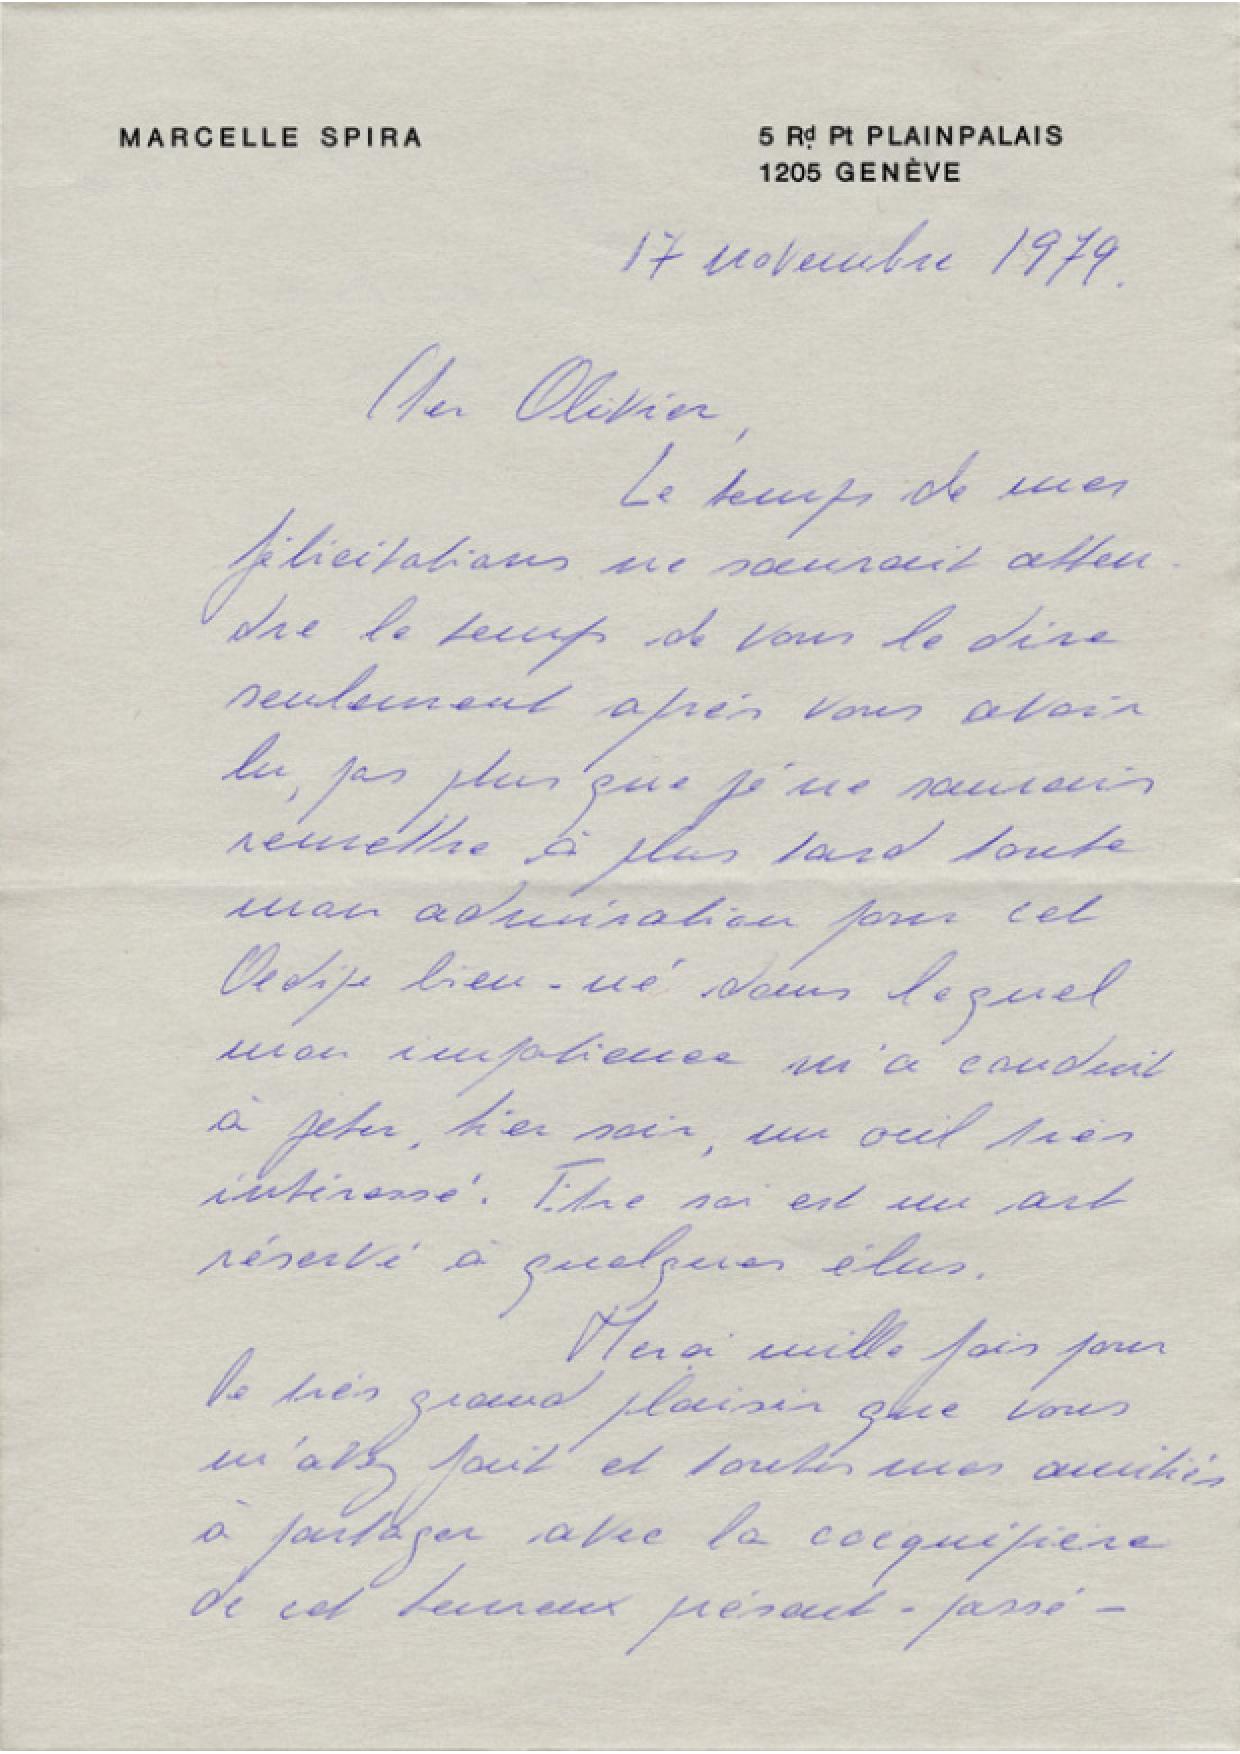 MARCELLE SPIRA
5 Rd Pt PLAINPALAIS
1205 GENÈVE
17 novembre 1979.
Cher Olivier,
Le temps de mes
félicitations ne saurait atten-
dre le temps de vous le dire
seulement après vous avoir
lu, pas plus que je ne saurais
remettre à plus tard toute
mon admiration pour cet
Oedipe bien-né dans lequel
mon impatience m'a conduit
à jeter, hier soir, un oeil très
intéressé. Etre soi est un art
réservé à quelques élus.
Merci mille fois pour
le très grand plaisir que vous
m'avez fait et toutes mes amitiés
à partager avec la coéquipière
de cet heureux présent-passé-